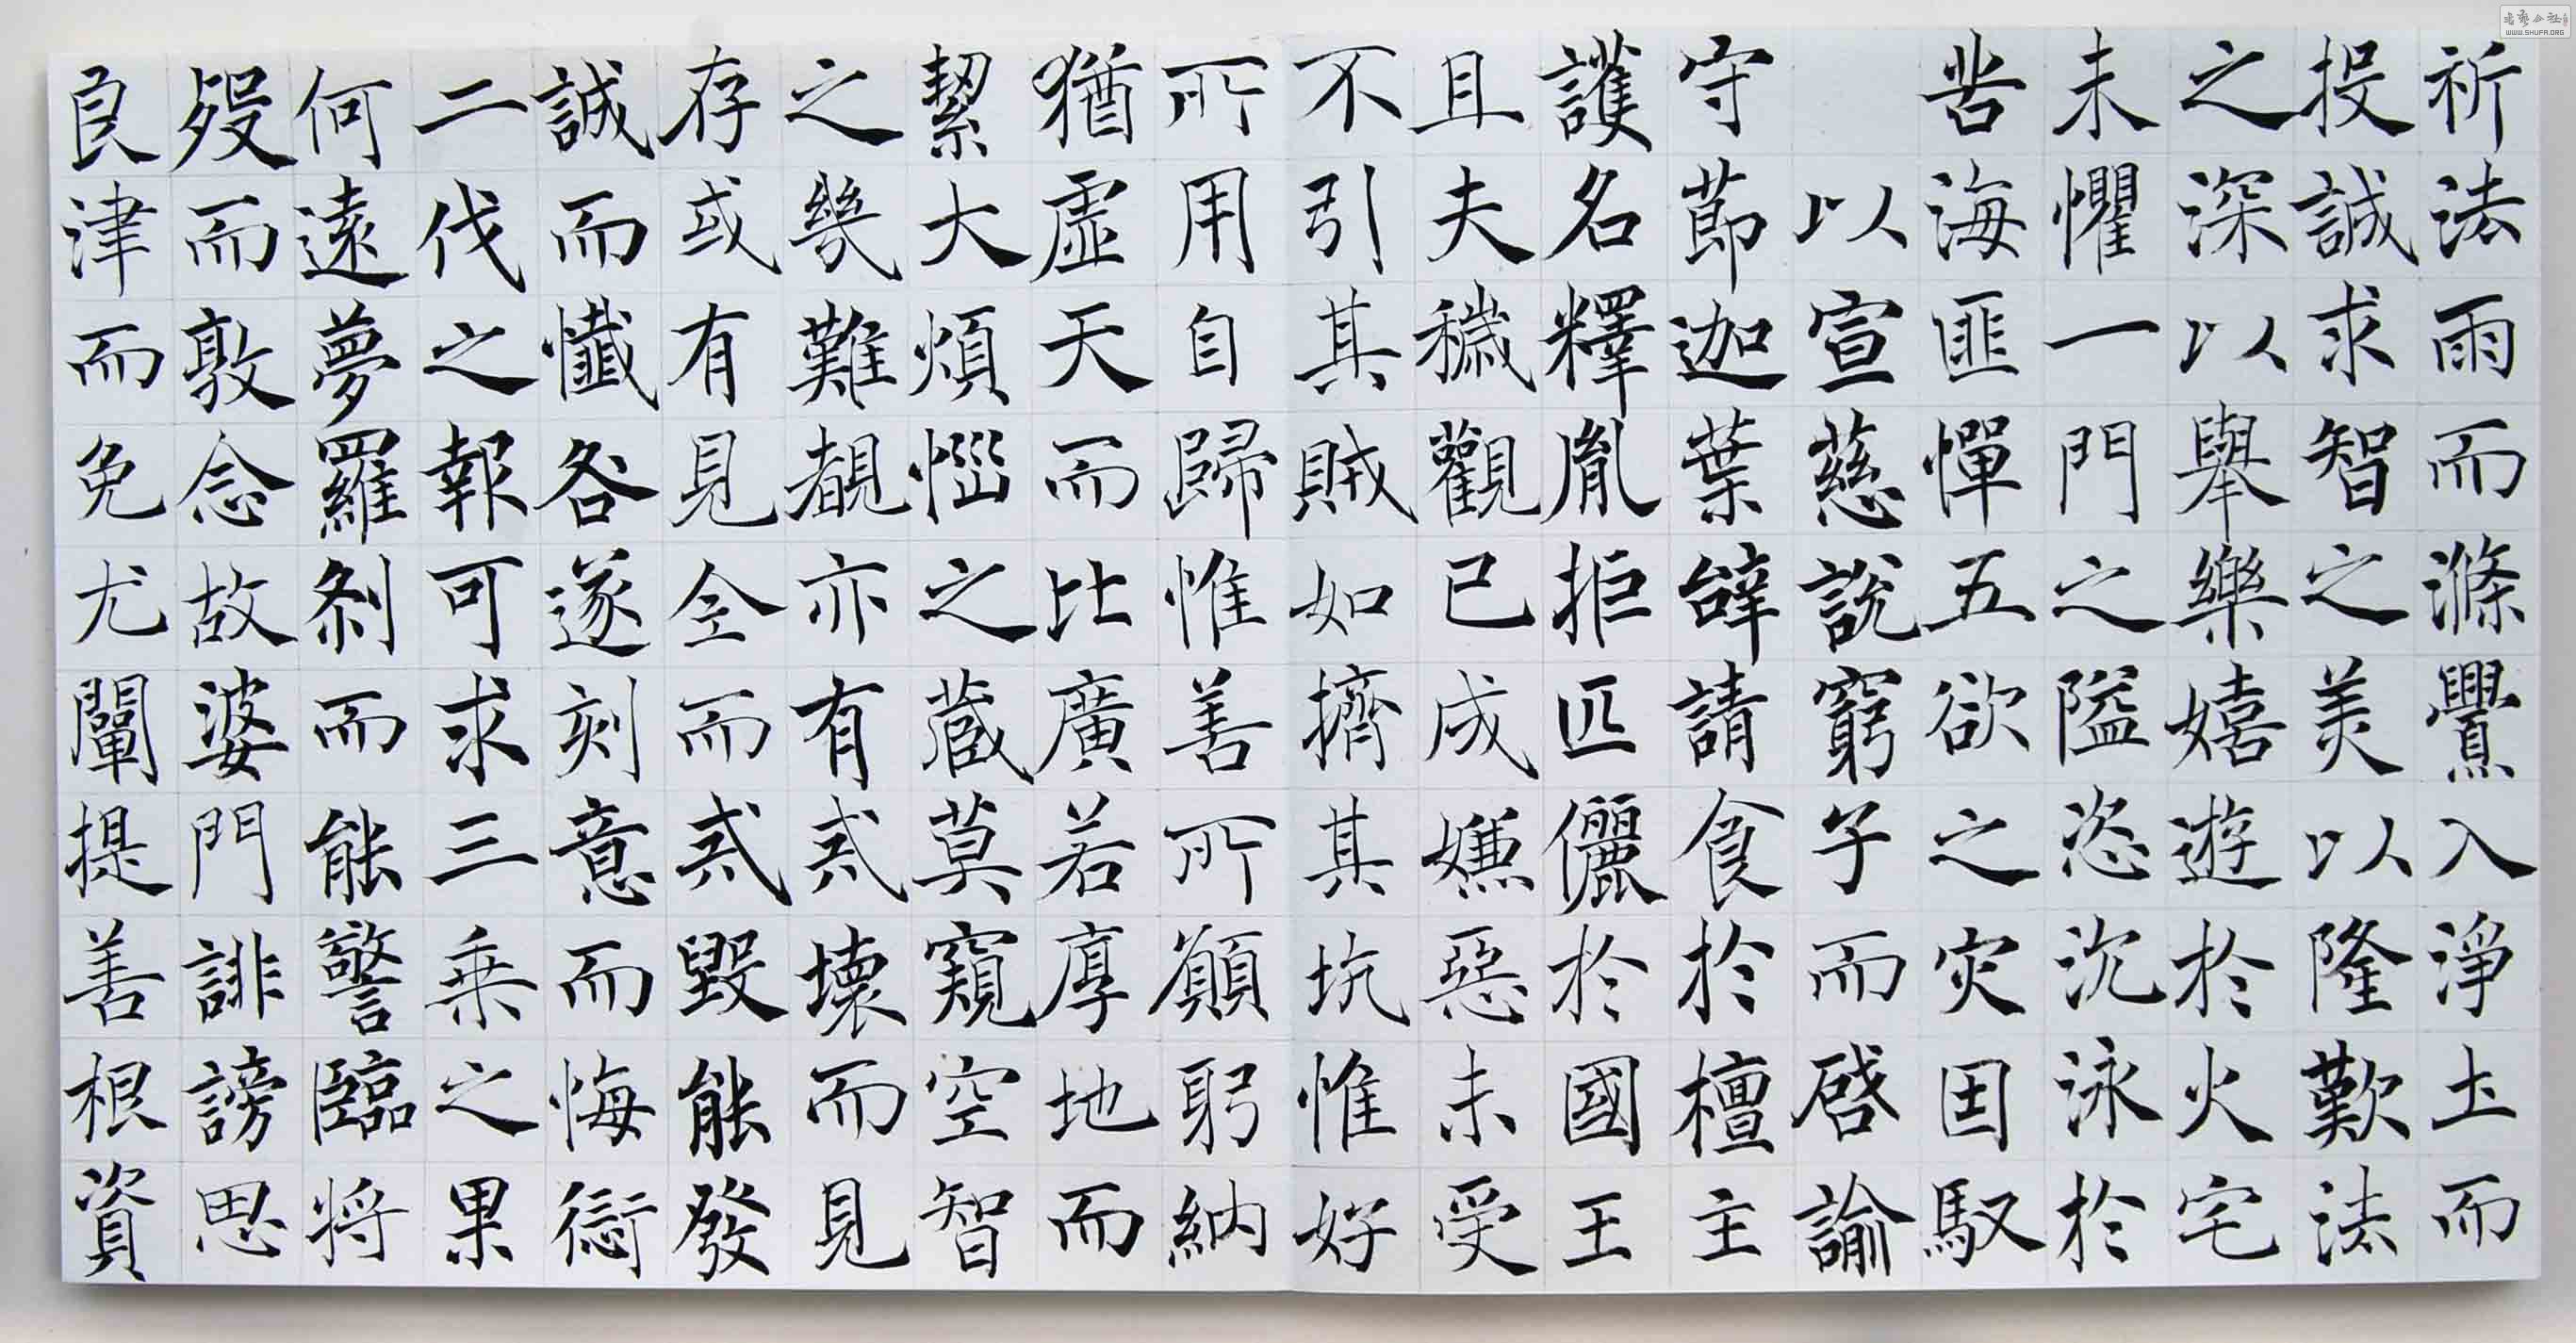 祈法雨而滌釁入淨土而
投誠求智之美以隆歎法
之深以舉樂嬉遊於火宅
未懼一門之隘恣沉泳於
苦海匪憚五欲之灾因馭
以宣慈說窮子而啓諭
守節迦葉辤請食於檀主
護名釋胤拒匹儷於國王
且夫穢觀已成嫌惡未受
不引其賊如擠其坑惟好
所用自歸惟善所願躬納
猶虛天而比廣若厚地而
絜大煩惱之藏莫窺空智
之幾難覩亦有貳壞而見
存或有見全而貳毀能發
誠而懺咎遂刻意而悔愆
二代之報可求三乘之果
何遠夢羅剎而能警臨將
歿而敦念故婆門誹謗思
良津而免尤闡提善根資
WWW.SHUFA.ORG